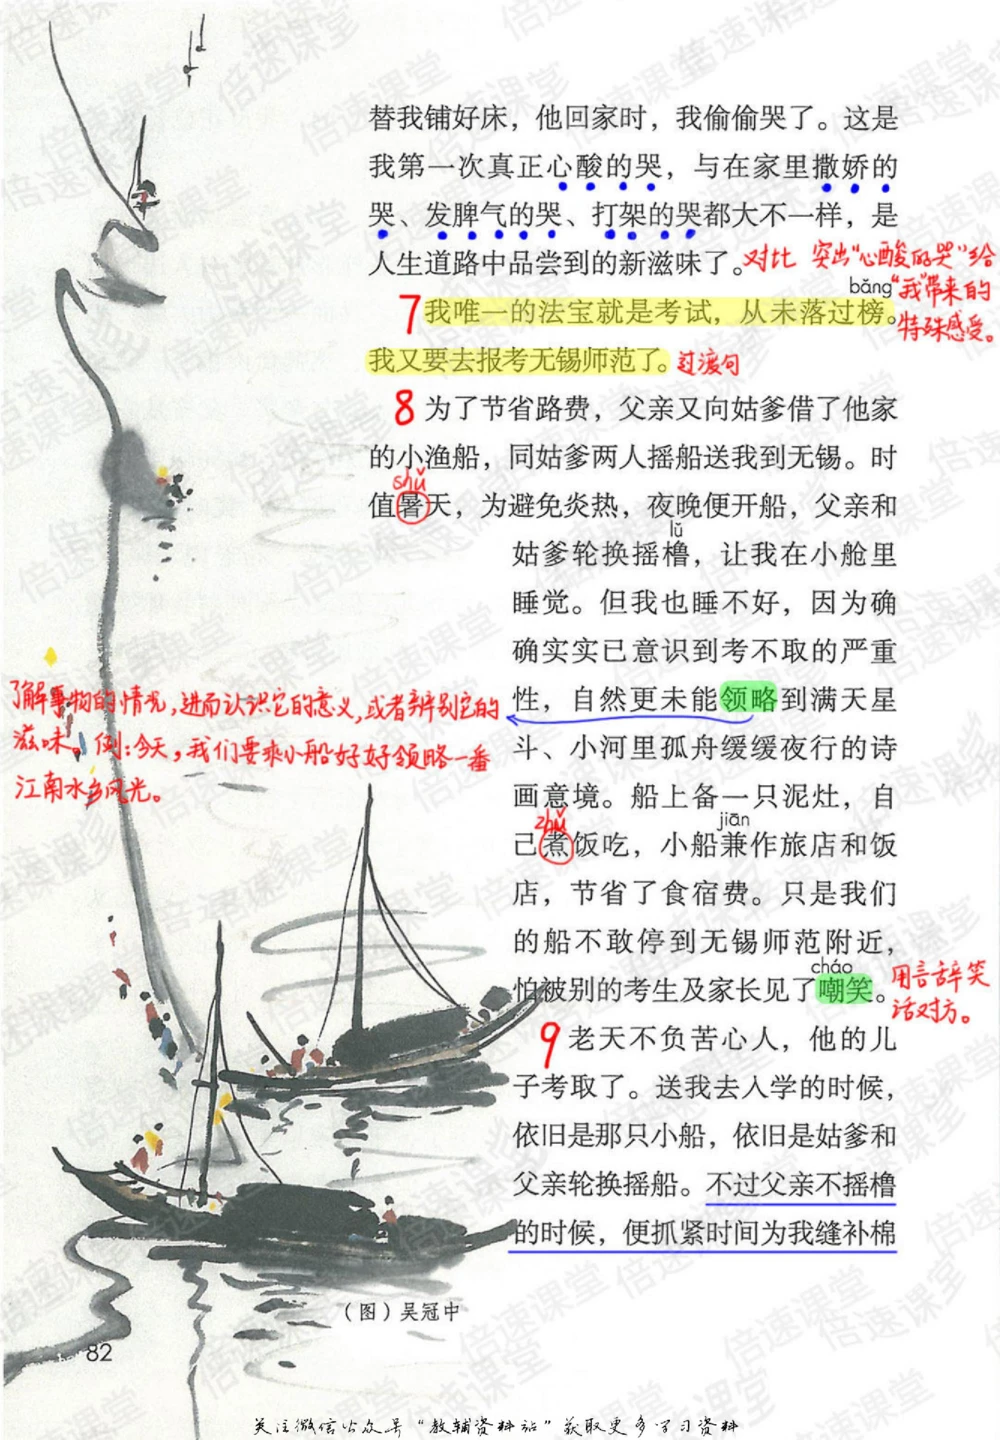 替我铺好床，他回家时，我偷偷哭了。这是
我第一次真正心酸的哭，与在家里撒娇的
哭、发脾气的哭、打架的哭都大不一样，是
人生道路中品尝到的新滋味了。对比 突出“心酸的哭”给
“我”带来的
特殊感受。
bǎng
7 我唯一的法宝就是考试，从未落过榜。
我又要去报考无锡师范了。过渡句
8 为了节省路费，父亲又向姑爹借了他家
的小渔船，同姑爹两人摇船送我到无锡。时
shǔ
值暑天，为避免炎热，夜晚便开船，父亲和
lǔ
姑爹轮换摇橹，让我在小舱里
睡觉。但我也睡不好，因为确
确实实已意识到考不取的严重
性，自然更未能领略到满天星
了解事物的情况，进而认识它的意义，或者辨别它的
滋味。例：今天，我们要乘小船好好领略一番
江南水乡风光。
斗、小河里孤舟缓缓夜行的诗
画意境。船上备一只泥灶，自
zhǔ jiān
己煮饭吃，小船兼作旅店和饭
店，节省了食宿费。只是我们
的船不敢停到无锡师范附近，
cháo
怕被别的考生及家长见了嘲笑。
用言辞笑
话对方。
9 老天不负苦心人，他的儿
子考取了。送我去入学的时候，
依旧是那只小船，依旧是姑爹和
父亲轮换摇船。不过父亲不摇橹
的时候，便抓紧时间为我缝补棉
（图）吴冠中
82
关注微信公众号“教辅资料站”获取更多学习资料
倍速课堂